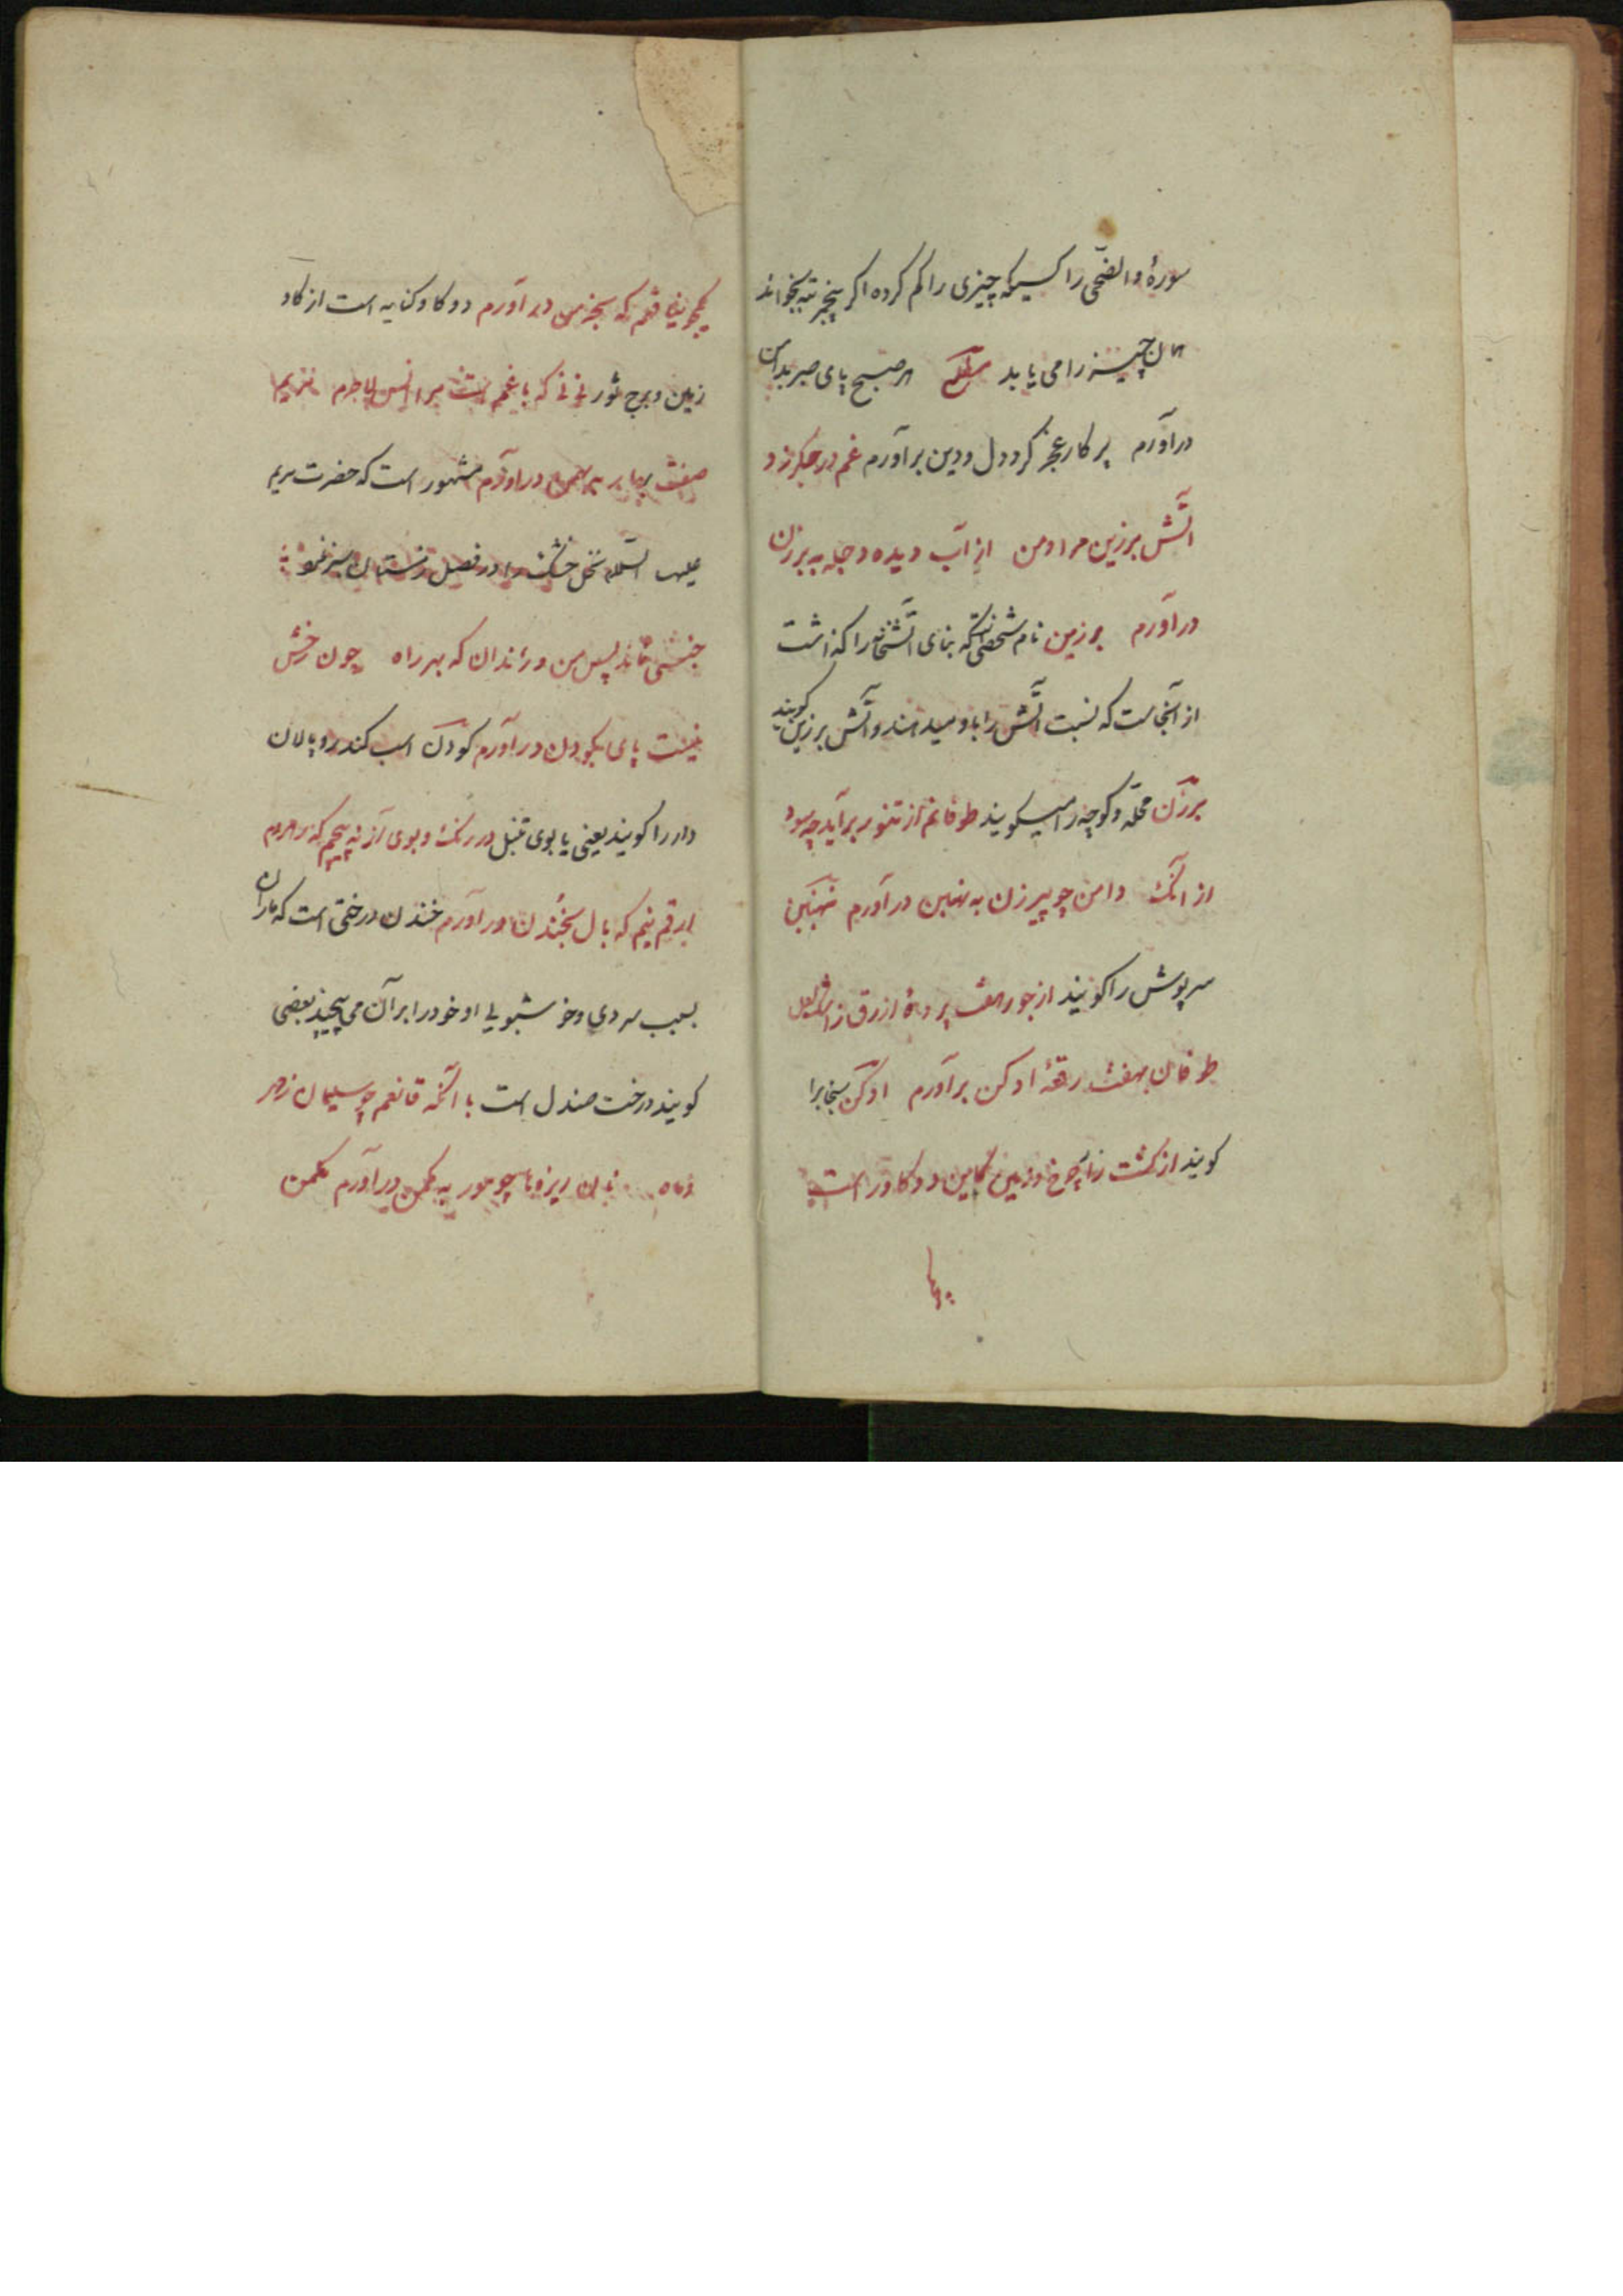 سورهٔ والضحی را کسیکه چیزی را کم کرده اکر پنجمرتبه بخواند
همان چیز را می یابد هر صبح پای صبر بدامن
درآورم پرکار عجز کرد دل و دین برآورم غم در جکر زد
آتش برزین مرا و من از آب دیده دجله به برزن
درآورم برزین نام شخصیست که بنای آتشخانه را کذاشت
از آنجاست که نسبت آتش را باو میدهند و آتش برزین کویند
برزن محله و کوچه را میکویند طوفانم از تنور برآید چه سود
از انک دامن چو پیرزن به نهنبن درآورم نهنبن
سرپوش را کویند از جور هفت پردهٔ ازرق ز اشک لعل
طوفان بهفت رقعهٔ ادکن برآورم ادکن سنجابرا
کویند از کشت زار چرخ و زمین کاین دو کاو راست
یکجو نیافتم که بخرمن درآورم دو کاو کنایه است از کاو
زمین و برج ثور نی نی که با غم است مرا انس لاجرم مریم
صفت بهار به بهمن درآورم مشهور است که حضرت مریم
علیها السلام نخل خشک را در فصل زمستان سبز نمود
جنسی نماند پس من و رندان که بهر راه چون رخش
نیست پای بکودن درآورم کودن اسب کندرو پالان
دار را کویند یعنی یابوی تنبل در رنک و بوی آز نه پیچم که رهروم
ارقم نیم که بال بخندن درآورم خندن درختی است که ماران
بسبب سردی و خوشبویی او خود را بر آن می پیچند بعضی
کویند درخت صندل است با آنکه قانعم چو سلیمان ز مهر
و ماه نان ریزها چو مور به مکمن درآورم مکمن